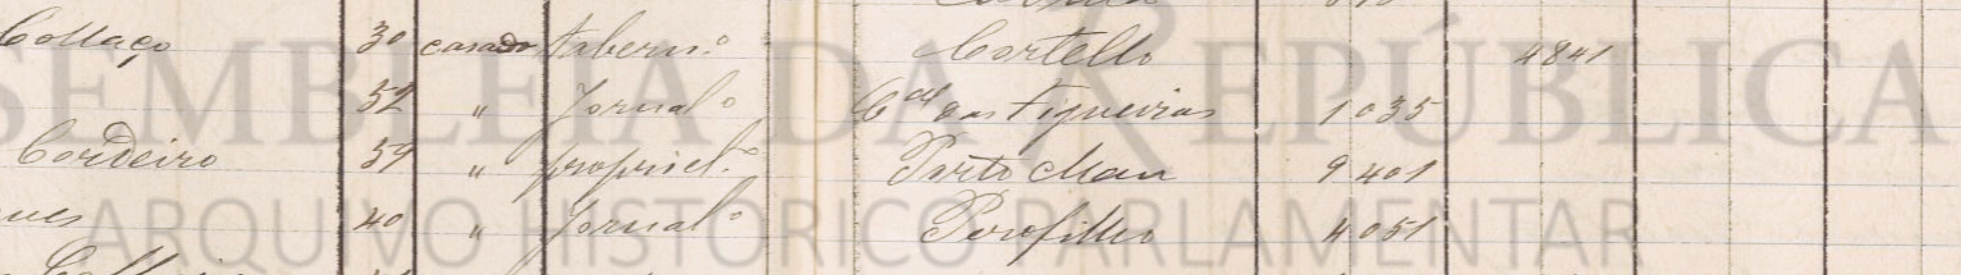 Collaço 30 casado tabern.º Cortello 4841
52 " Jornal.º C.al das Figueiras 1035
Cordeiro 59 " propriet.º Porto Mau 9401
ues 40 " Jornal.º Perofilho 4051
ASSEMBLEIA DA REPÚBLICA
ARQUIVO HISTÓRICO PARLAMENTAR